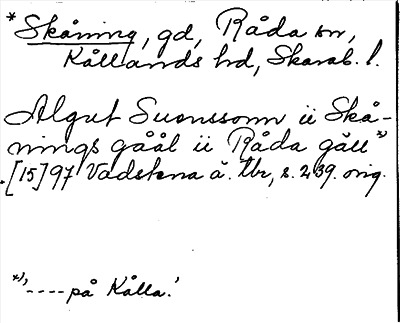 *Skåning, gd, Råda sn,
Kållands hd, Skarab. l.
Algut Suenssonn ii Skå-
nings gåål ii Råda gåll*)
[15]97 Vadstena ä. tbr, s. 239. orig.
*) ---- på Kålla!